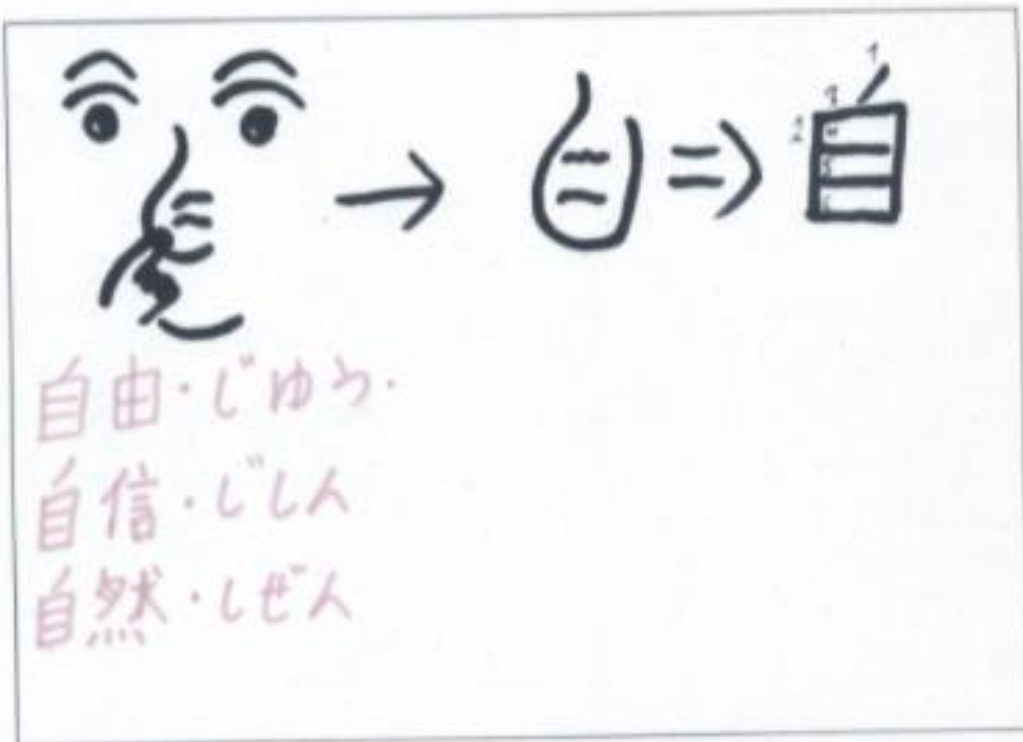 自
自由・じゆう・
自信・じしん
自然・しぜん